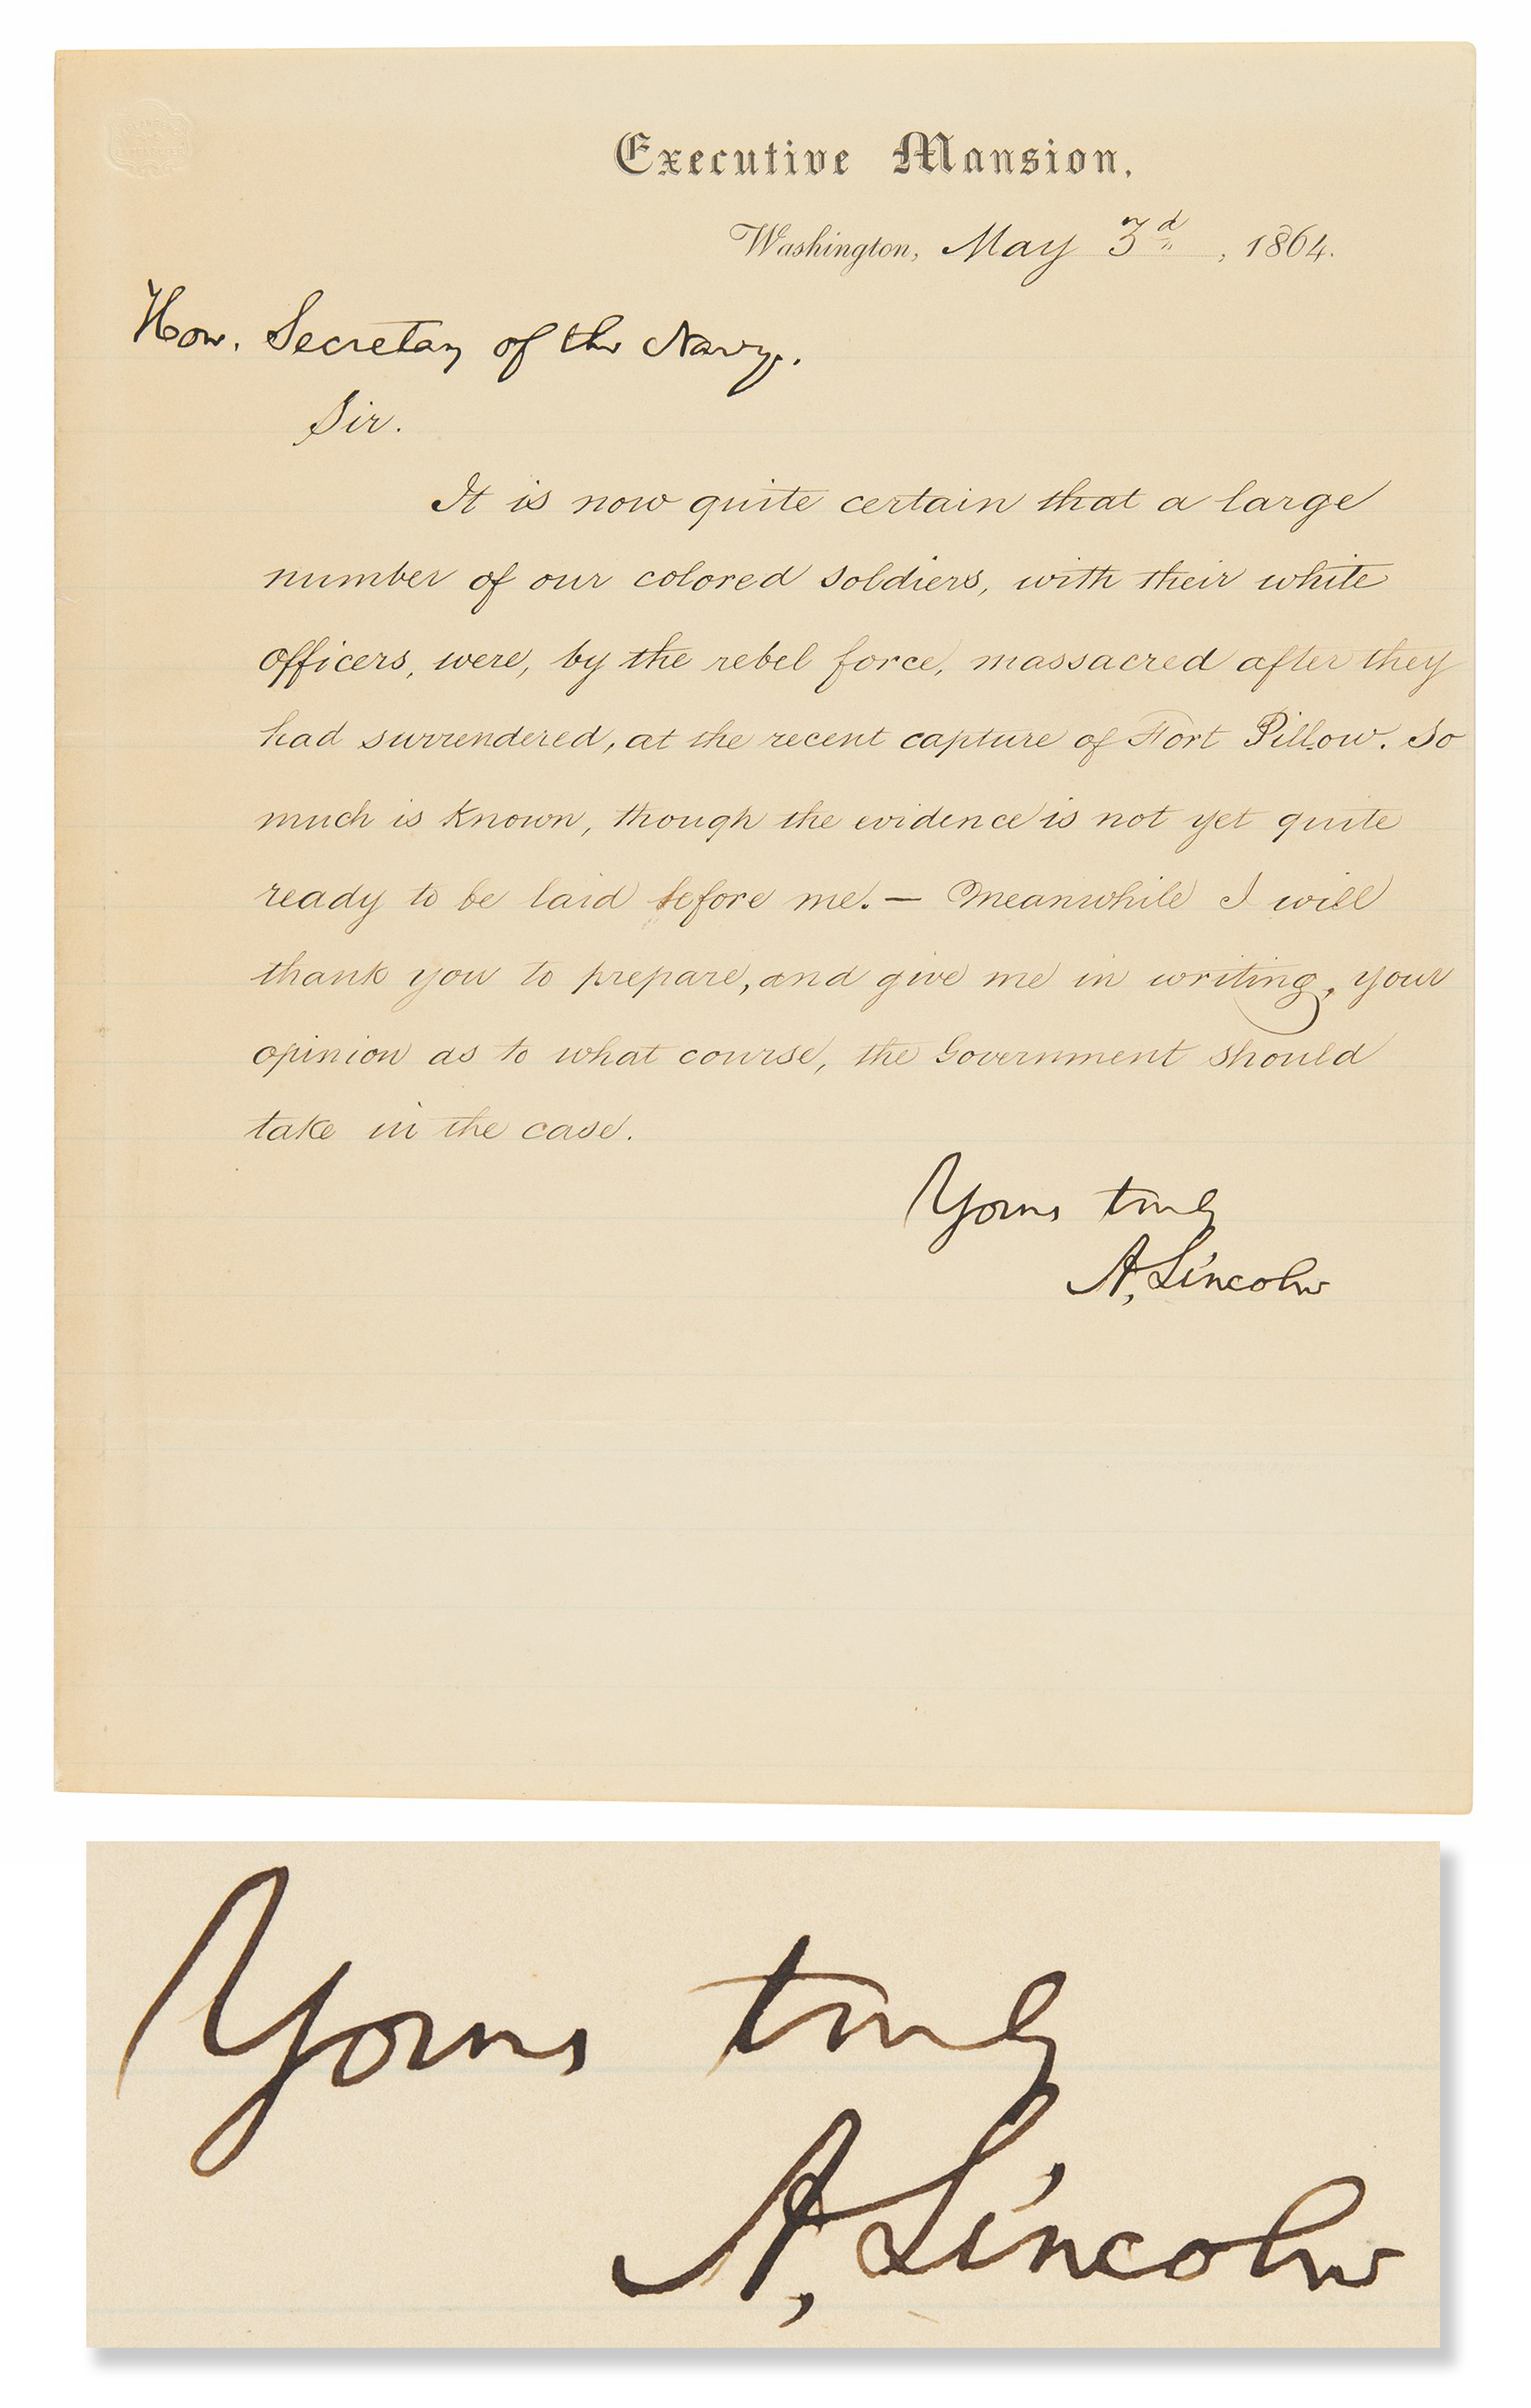 Executive Mansion,
Washington, May 3d, 1864.
Hon. Secretary of the Navy.
Sir.
It is now quite certain that a large
number of our colored soldiers, with their white
officers, were, by the rebel force, massacred after they
had surrendered, at the recent capture of Fort Pillow. So
much is known, though the evidence is not yet quite
ready to be laid before me. — Meanwhile I will
thank you to prepare, and give me in writing, your
opinion as to what course, the Government should
take in the case.
Yours truly
A. Lincoln
Yours truly
A. Lincoln